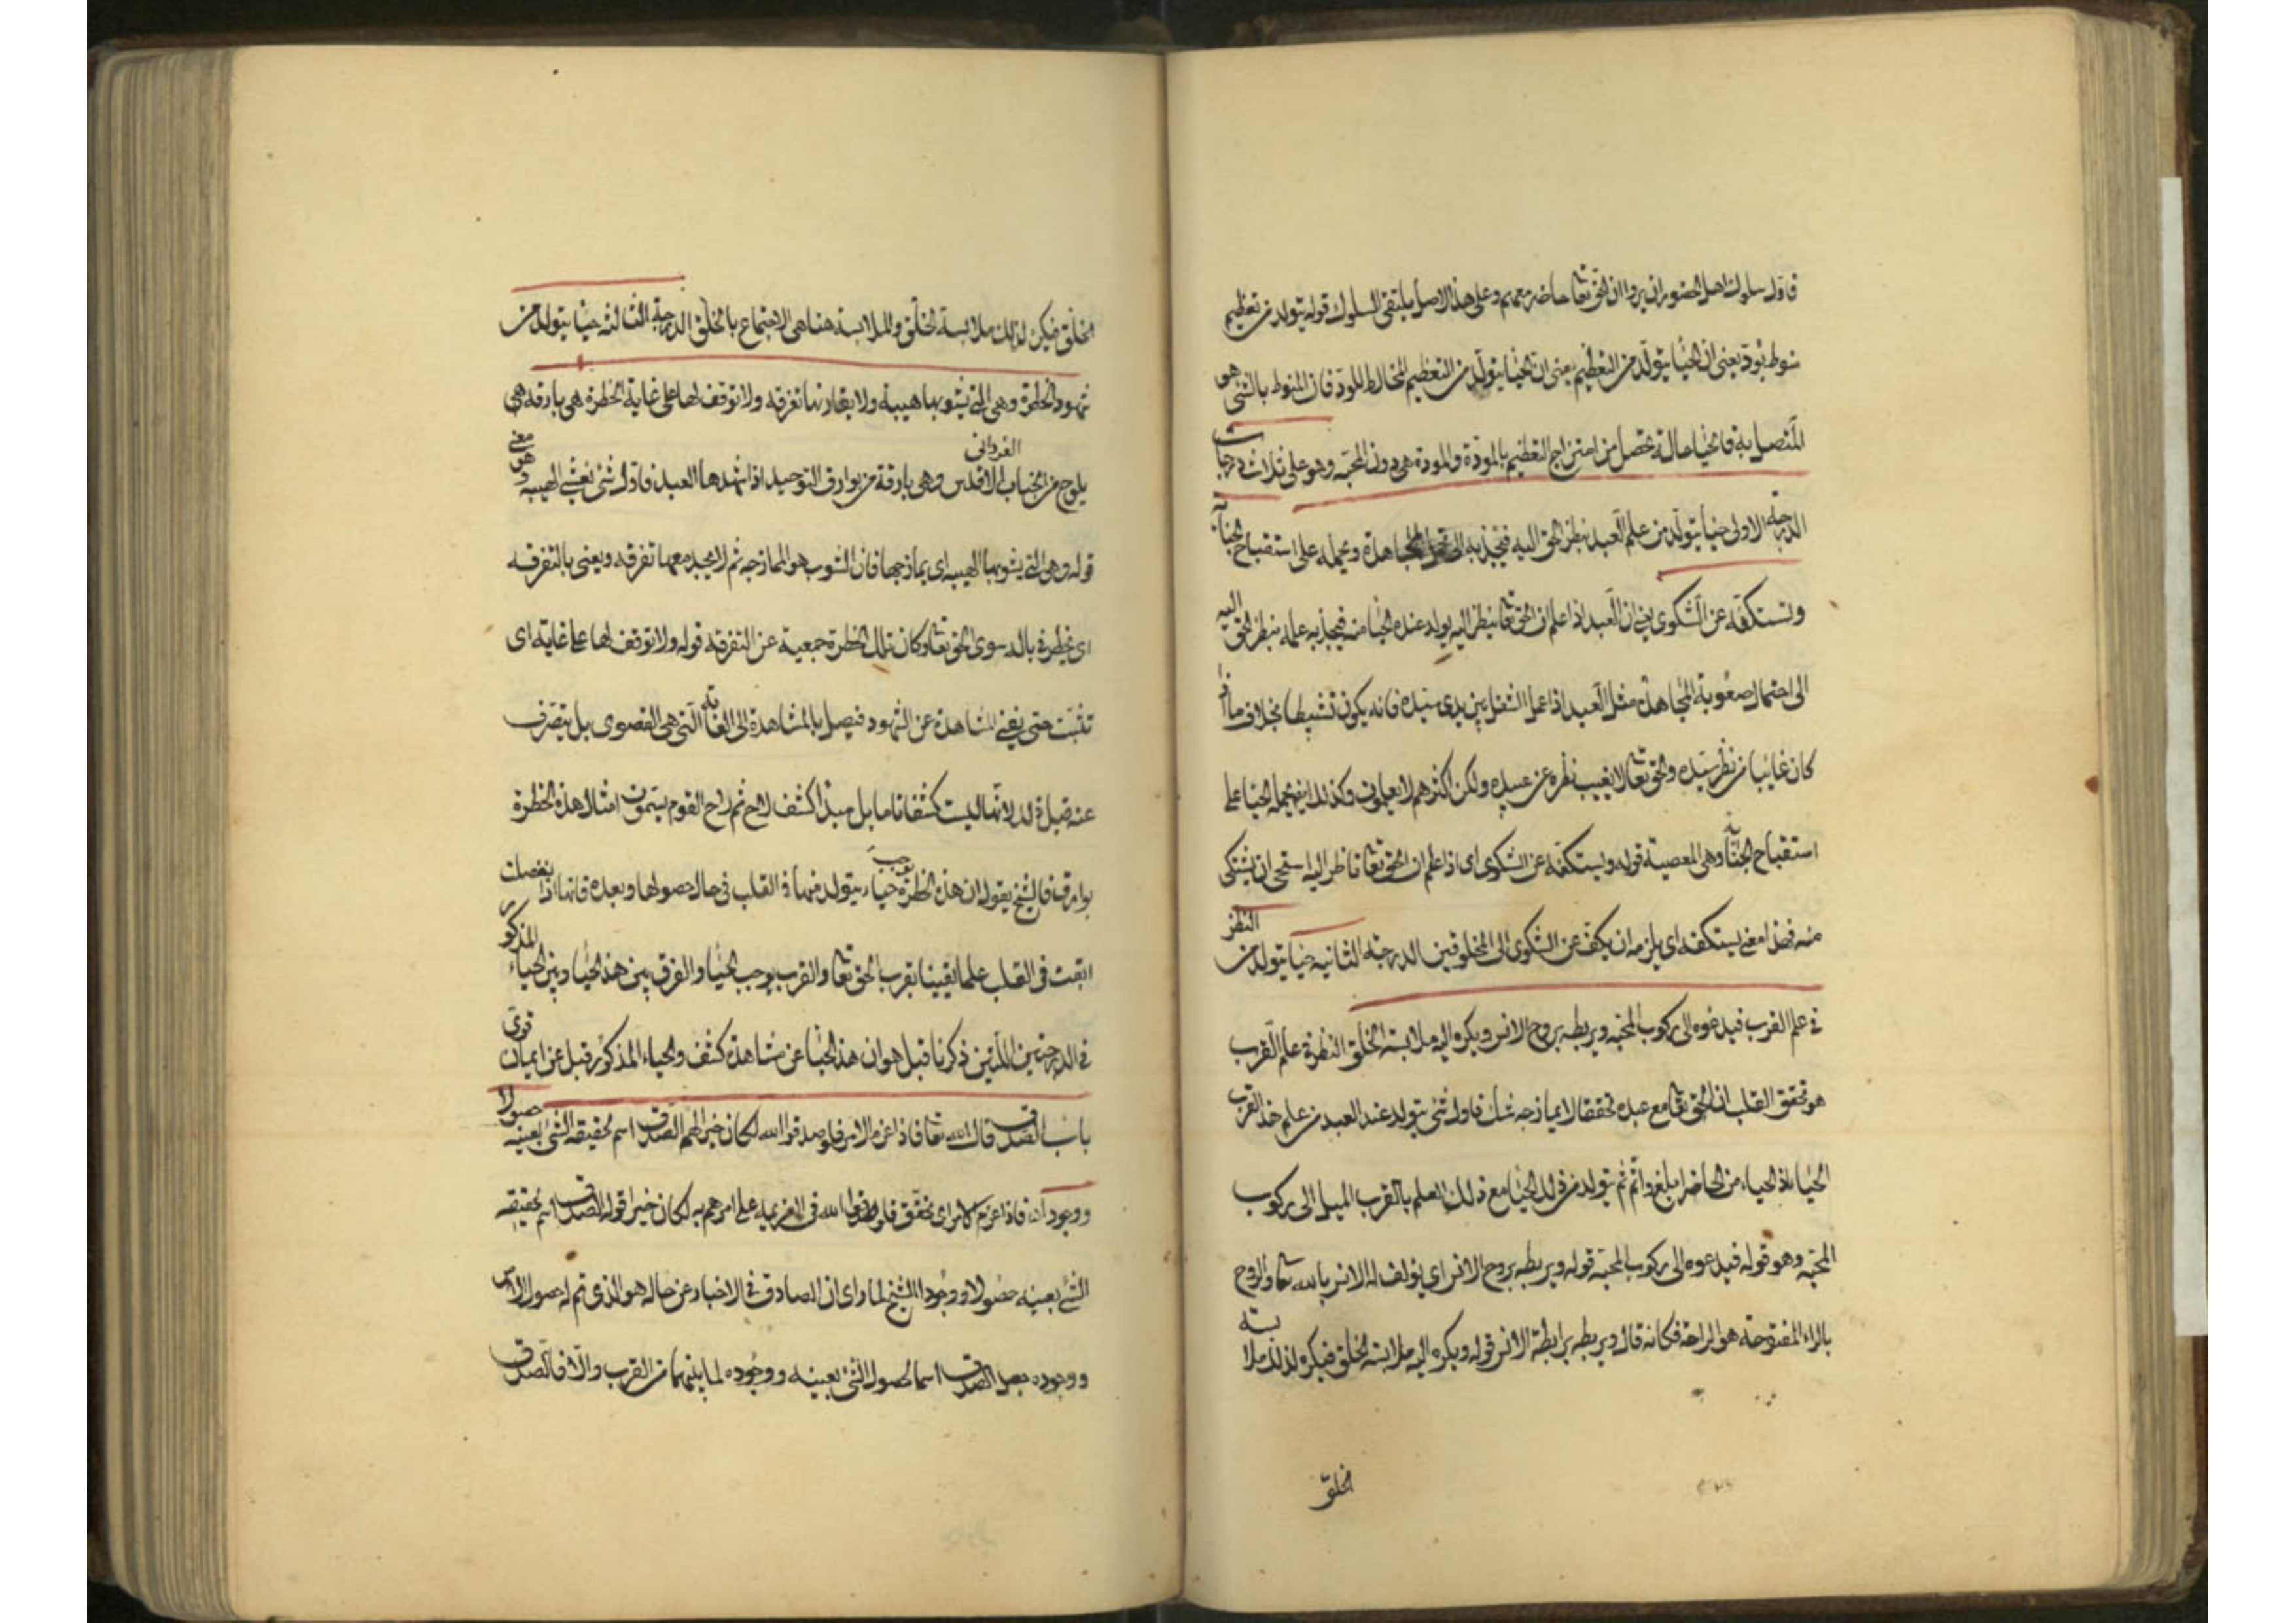 فاول سلوك اهل الحضور ان يروا ان الحق تعا حاضر معهم وعلى هذا الاصل يبتنى السلوك قوله يتولد من تعظيم
منوط بود يعنى ان الحيا يتولد من التعظيم يعنى ان الحيا يتولد من التعظيم المخالط للود فان المنوط بالشى هو
المتصل به فالحيا حالة تحصل من امتزاج التعظيم بالمودة والمودة هى دون المحبه وهو على ثلاث درجات
الدرجة الاولى حيا يتولد من علم العبد بنظر الحق اليه فيجذبه الى تحمل المجاهدة ويحمله على استقباح الجناية
ويستكفه عن الشكوى يعنى ان العبد اذا علم ان الحق تعا ينظر اليه يولد عنده الحيا منه فيجذبه علمه بنظر الحق اليه
الى احتمال صعوبة المجاهدة مثل العبد اذا عمل الشغل بين يدى سيده فانه يكون نشيطا بخلاف ما اذا
كان غايبا من نظر سيده والحق تعا لا يغيب نظره عن عبيده ولكن اكثرهم لا يعلمون وكذلك ايضا يحمله الحيا على
استقباح الجناية وهى المعصية قوله ويستكفه عن الشكوى اى اذا علم ان الحق تعا ناظر اليه استحى ان يشتكى
منه فهذا معنى يستكفه اى يلزمه ان يكف عن الشكوى الى المخلوقين الدرجة الثانيه حيا يتولد من النظر
فى علم القرب فيدعوه الى ركوب المحبه ويربطه بروح الانس ويكره اليه ملابسة الخلق النظر فى علم القرب
هو تحقق القلب ان الحق تعا مع عبده تحققا لا يمازجه شك فاول شى يتولد عند العبد من علم هذا القرب
الحيا اذ الحياء من الحاضر ابلغ واتم ثم يتولد من ذلك الحيا مع ذلك العلم بالقرب الميل الى ركوب
المحبه وهو قوله فيدعوه الى ركوب المحبه قوله ويربطه بروح الانس اى يؤلف له الانس بالله تعا والروح
بالراء المفتوحة هو الراحة فكانه قال ويربطه برابطة الانس قوله ويكره اليه ملابسة الخلق فيكره لذلك ملابسة
الخلق
الخلق فيكره لذلك ملابسة الخلق والملابسة هنا هى الاجتماع بالخلق الدرجة الثالثه حيا يتولد من
شهود الخطرة وهى التى يشوبها هيبة ولا يقارنها تفرقه ولا توقف لها على غاية الخطرة هى بارقه هى
يلوح من الجناب الاقدس الفردانى وهى بارقة من بوارق التوحيد اذا شهدها العبد فاول شى تغشى الهيبه وهو معنى
قوله وهى التى يشوبها الهيبه اى يمازجها فان الشوب هو الممازجه ثم لا يجد معها تفرقه ويعنى بالتفرقه
اى يخطر فى بالد سوى الحق تعا وكان تلك الخطرة جمعية عن التفرقه قوله ولا توقف لها على غاية اى
تثبت حتى يغنى المشاهدة عن الشهود فيصل بالمشاهدة الى الغاية التى هى القصوى بل ينصرف
عنه قبل ذلك لانها ليست كشفا تاما بل مبدا كشف لاح ثم راح القوم يسمون امثال هذه الخطرة
بوارق فالشيخ يقول ان هذه الخطرة يوجب حياء يتولد منها فى القلب فى حال حصولها وبعده فانها اذا انفصلت
ابقت فى القلب علما يقينا بقرب الحق تعا والقرب يوجب الحيا والفرق بين هذا الحيا وبين الحياء المذكور
فى الدرجتين اللتين ذكرنا قبل هو ان هذا الحيا عن مشاهدة كشف والحياء المذكور قبل عن ايمان قوى
باب الصدق قال الله تعا فاذا عزم الامر فلو صدقوا الله لكان خيرا لهم الصدق اسم لحقيقه الشى بعينه حصولا
ووجودا فاذا عزم الامر اى تحقق فلو صدقوا الله فى العزيمه على امرهم به لكان خيرا قوله الصدق اسم لحقيقه
الشى بعينه حصولا ووجودا الشيخ لما راى ان الصادق فى الاخبار عن حاله هو الذى تم له حصول الامر
ووجوده جعل الصدق اسما لحصول الشى بعينه ووجوده لما بينهما من القرب والا فالصدق